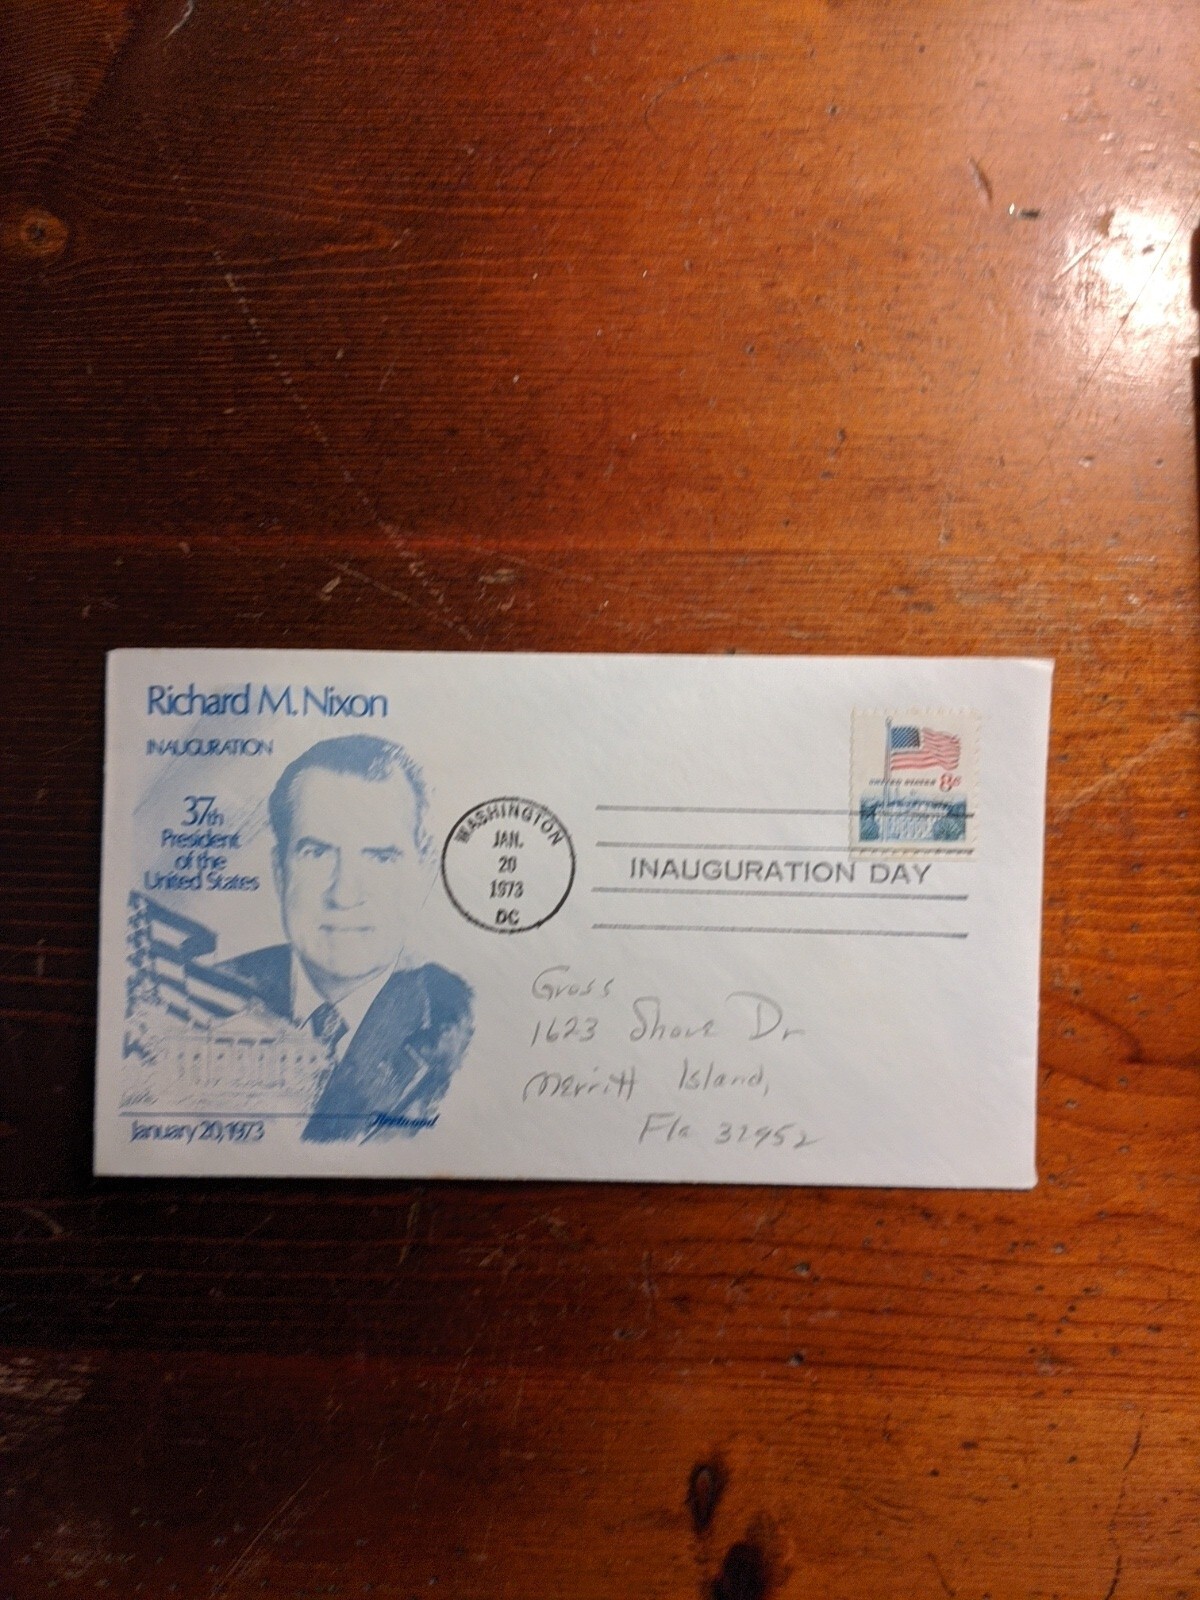 Richard M. Nixon
INAUGURATION
37th
President
of the
United States
January 20, 1973
Fleetwood
WASHINGTON
JAN.
20
1973
DC
UNITED STATES 8c
INAUGURATION DAY
Gross
1623 Shore Dr
Merritt Island,
Fla 32952